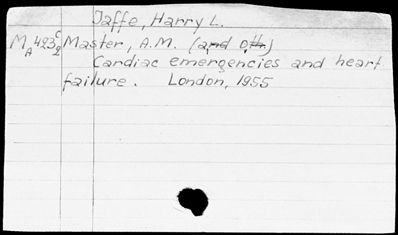 Jaffe, Harry L.
MA 423c2 Master, A.M. (and oth.)
Cardiac emergencies and heart
failure. London, 1955